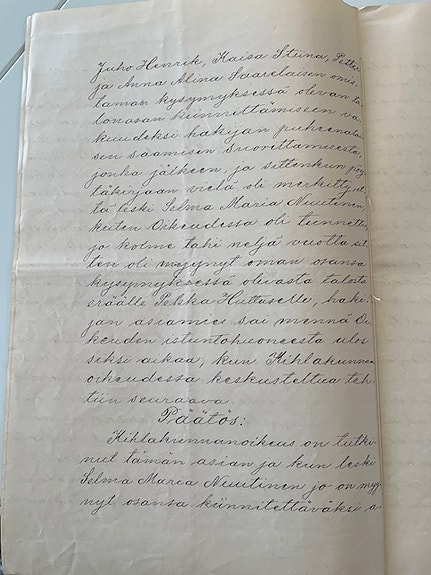 Juho Henrik, Kaisa Stiina, Petter
ja Anna Alina Saarelaisen omis-
taman kysymyksessä olevan ta-
lonosan kiinnittämiseen va-
kuudeksi hakijan puheenala-
sen saamisen suorittamisesta,
jonka jälkeen, ja sittenkun pöy-
täkirjaan vielä oli merkitty et-
tä leski Selma Maria Nuutinen,
kuten Oikeudessa oli tunnettu,
jo kolme tahi neljä vuotta sit-
ten oli myynyt oman osansa
kysymyksessä olevasta talosta
eräälle Pekka Huttuselle, haki-
jan asiamies sai mennä Oi-
keuden istuntohuoneesta ulos
siksi aikaa, kun Kihlakunnan
oikeudessa keskusteltua teh-
tiin seuraava
Päätös:
Kihlakunnanoikeus on tutki-
nut tämän asian ja kun leski
Selma Maria Nuutinen jo on myy-
nyt osansa kiinnitettäväksi a